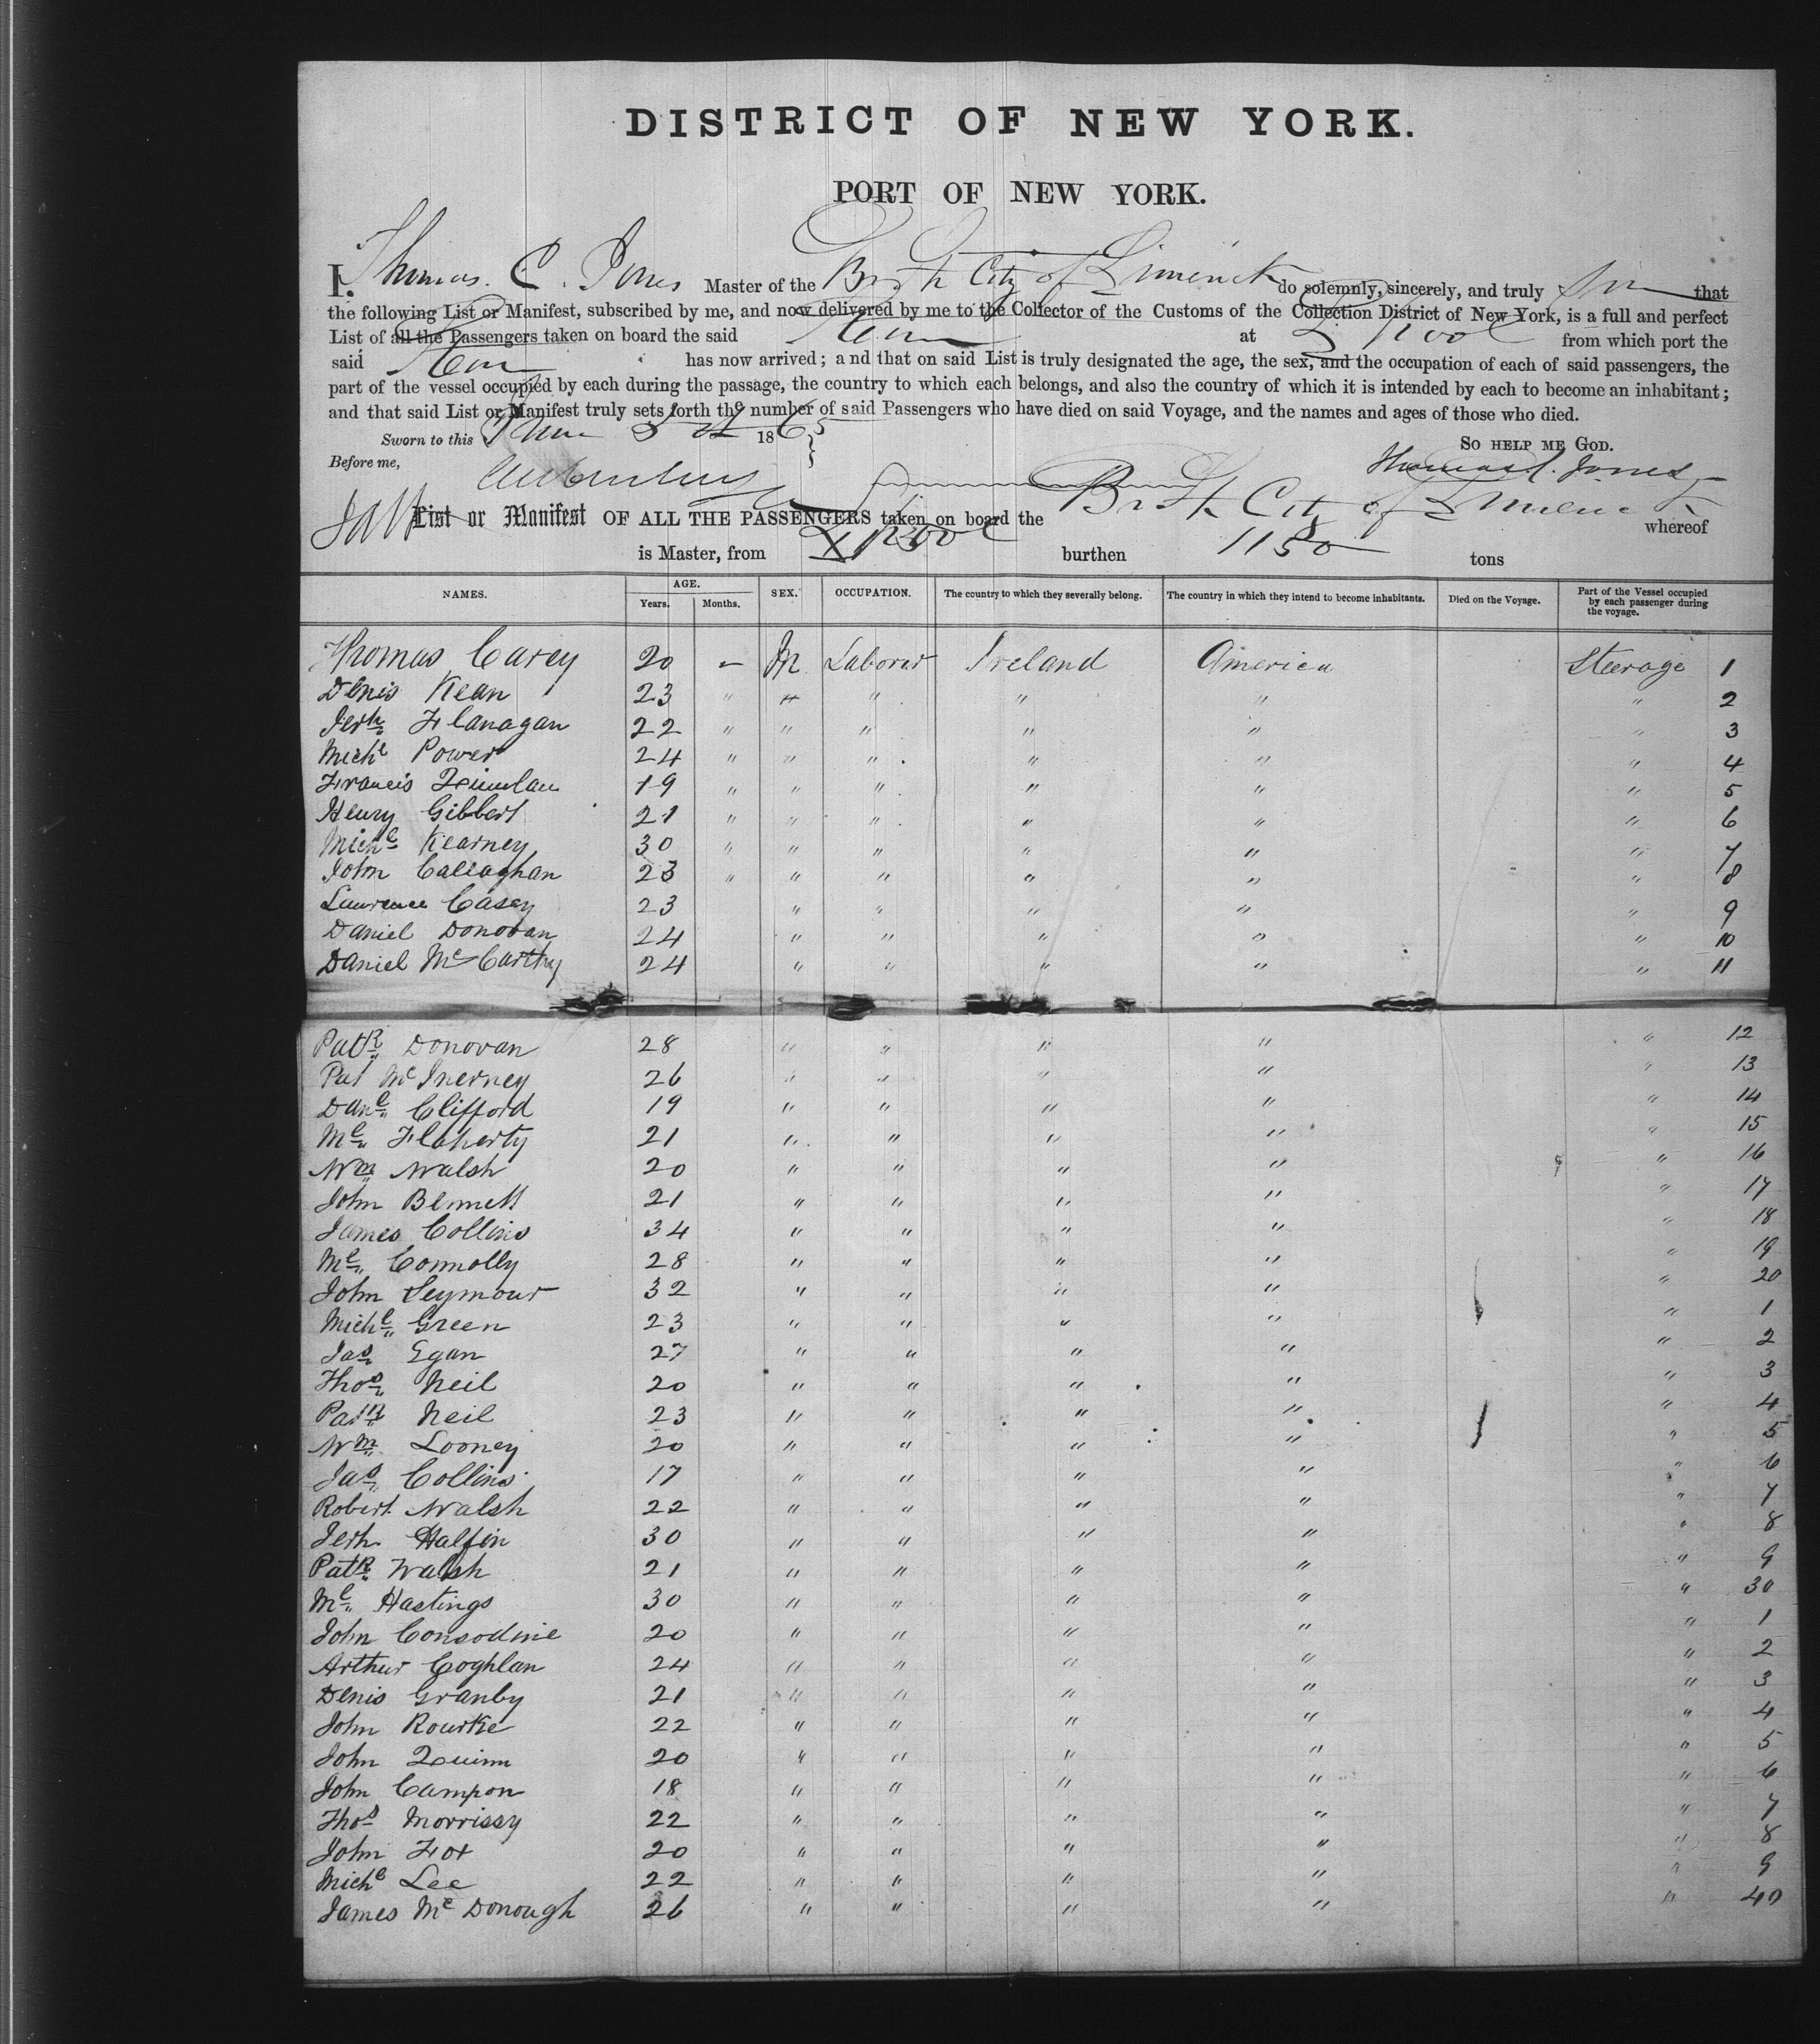 DISTRICT OF NEW YORK.
PORT OF NEW YORK.
I, Thomas. C. Jones Master of the Brsh City of Limerick do solemnly, sincerely, and truly that
the following List or Manifest, subscribed by me, and now delivered by me to the Collector of the Customs of the Collection District of New York, is a full and perfect
List of all the Passengers taken on board the said at L'pool from which port the
said has now arrived; and that on said List is truly designated the age, the sex, and the occupation of each of said passengers, the
part of the vessel occupied by each during the passage, the country to which each belongs, and also the country of which it is intended by each to become an inhabitant;
and that said List or Manifest truly sets forth the number of said Passengers who have died on said Voyage, and the names and ages of those who died.
Sworn to this June 5 1865
So help me God.
Before me,
Thomas C. Jones
List or Manifest OF ALL THE PASSENGERS taken on board the Brsh City of Limerick whereof
is Master, from L'pool burthen 1150 tons
NAMES. AGE. Years. Months. SEX. OCCUPATION. The country to which they severally belong. The country in which they intend to become inhabitants. Died on the Voyage. Part of the Vessel occupied by each passenger during the voyage.
Thomas Carey 20 – M Laborer Ireland America Steerage 1
Denis Kean 23 " " " " " " 2
Jerh Flanagan 22 " " " " " " 3
Michl Power 24 " " " " " " 4
Francis Quinlan 19 " " " " " " 5
Henry Gibbert 21 " " " " " " 6
Michl Kearney 30 " " " " " " 7
John Callaghan 23 " " " " " " 8
Lawrence Casey 23 " " " " " 9
Daniel Donovan 24 " " " " " 10
Daniel McCarthy 24 " " " " " 11
Patk Donovan 28 " " " " " 12
Pat McInerney 26 " " " " " 13
Danl Clifford 19 " " " " " 14
Ml Flaherty 21 " " " " " 15
Wm Walsh 20 " " " " " 16
John Bennett 21 " " " " " 17
James Collins 34 " " " " " 18
Ml Connolly 28 " " " " " 19
John Seymour 32 " " " " " 20
Michl Green 23 " " " " " 1
Jas Egan 27 " " " " " 2
Thos Neil 20 " " " " " 3
Patk Neil 23 " " " " " 4
Wm Looney 20 " " " " " 5
Jas Collins 17 " " " " " 6
Robert Walsh 22 " " " " " 7
Jerh Halfin 30 " " " " " 8
Patk Walsh 21 " " " " " 9
Ml Hastings 30 " " " " " 30
John Consodine 20 " " " " " 1
Arthur Coghlan 24 " " " " " 2
Denis Granby 21 " " " " " 3
John Rourke 22 " " " " " 4
John Quinn 20 " " " " " 5
John Campon 18 " " " " " 6
Thos Morrissy 22 " " " " " 7
John Fox 20 " " " " " 8
Michl Lee 22 " " " " " 9
James McDonough 26 " " " " " 40